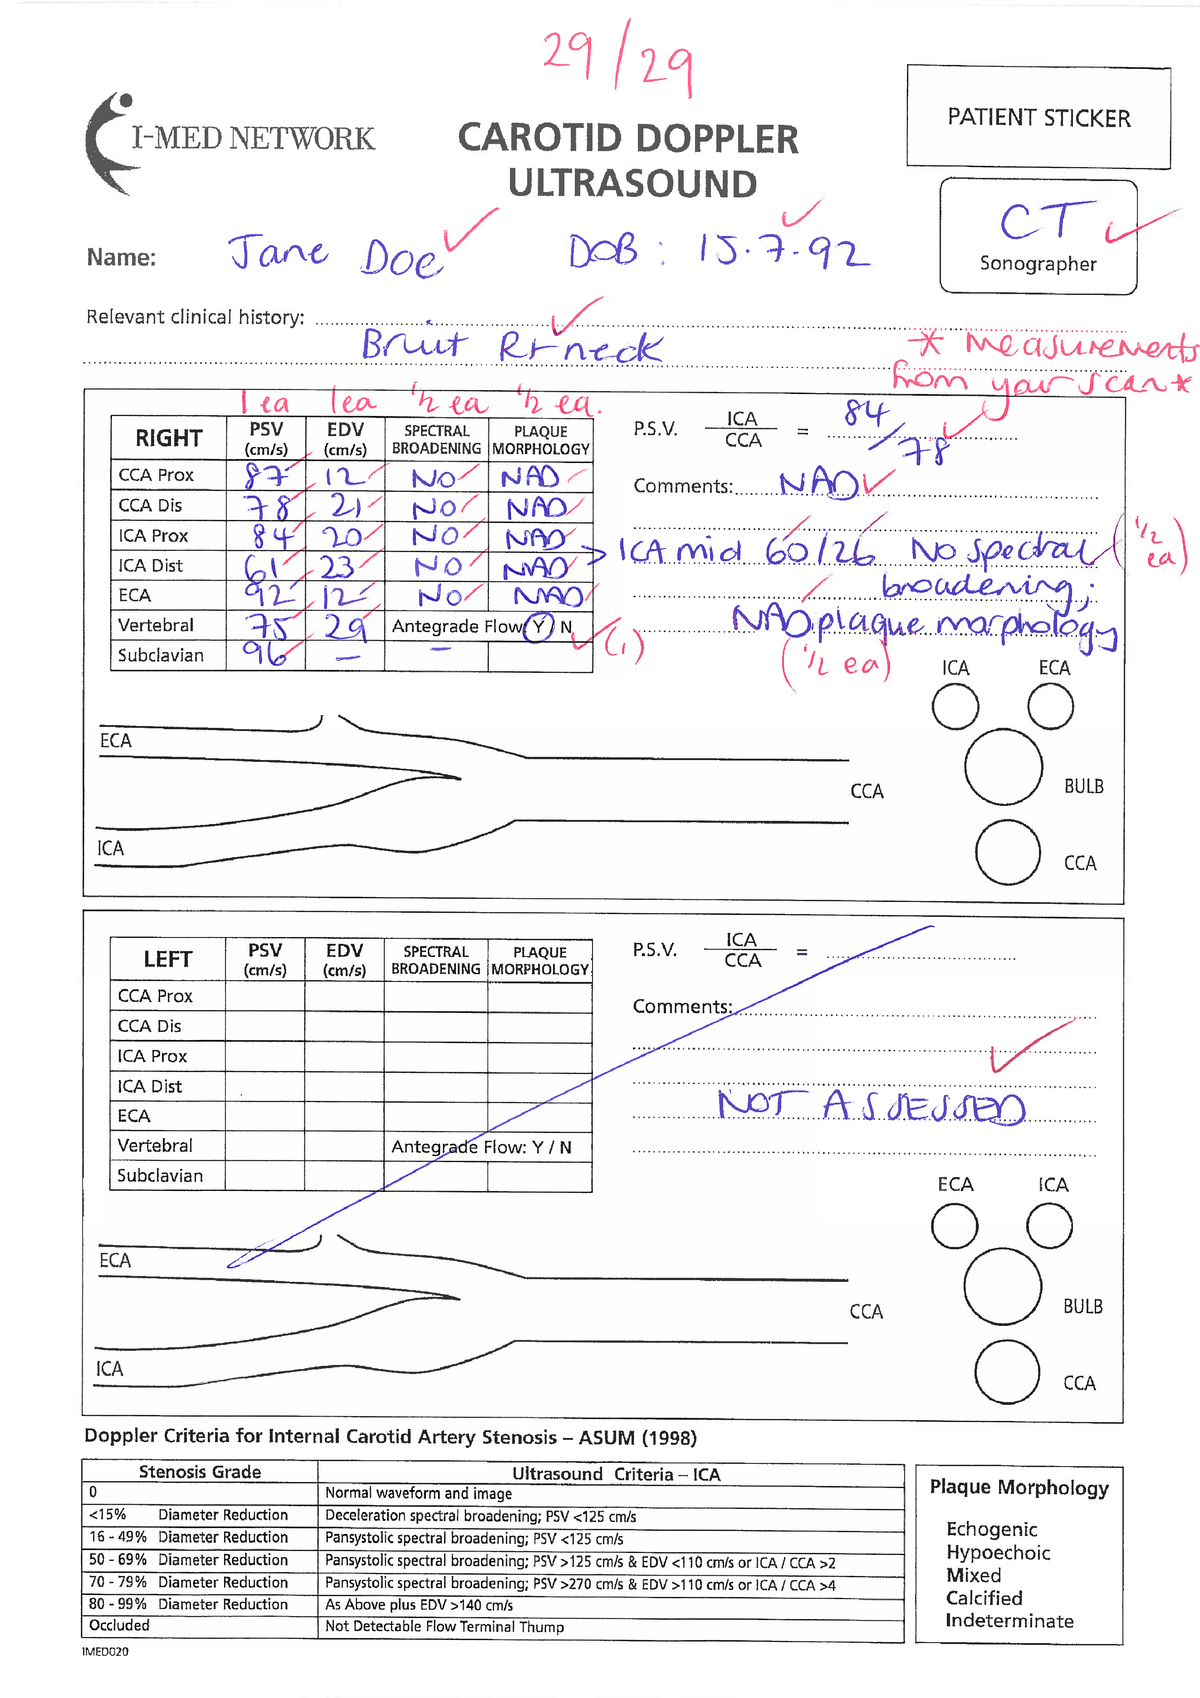 29/29
I-MED NETWORK
CAROTID DOPPLER
ULTRASOUND
PATIENT STICKER
CT
Sonographer
Name: Jane Doe DOB: 15.7.92
Relevant clinical history:
Bruit Rt neck
* Measurements
from your scan *
1 ea 1 ea 1/2 ea 1/2 ea.
RIGHT PSV (cm/s) EDV (cm/s) SPECTRAL BROADENING PLAQUE MORPHOLOGY
CCA Prox 87 12 NO NAD
CCA Dis 78 21 NO NAD
ICA Prox 84 20 NO NAD
ICA Dist 61 23 NO NAD
ECA 92 12 NO NAD
Vertebral 75 29 Antegrade Flow Y N (1)
Subclavian 96 — —
P.S.V. ICA/CCA = 84/78
Comments: NAD
> ICA mid 60/26 No spectral (1/2 ea)
broadening;
NAD plaque morphology
(1/2 ea)
ICA ECA
ECA
CCA
BULB
ICA
CCA
LEFT PSV (cm/s) EDV (cm/s) SPECTRAL BROADENING PLAQUE MORPHOLOGY
CCA Prox
CCA Dis
ICA Prox
ICA Dist
ECA
Vertebral Antegrade Flow: Y / N
Subclavian
P.S.V. ICA/CCA =
Comments:
NOT ASSESSED
ECA ICA
ECA
CCA
BULB
ICA
CCA
Doppler Criteria for Internal Carotid Artery Stenosis – ASUM (1998)
Stenosis Grade Ultrasound Criteria – ICA
0 Normal waveform and image
<15% Diameter Reduction Deceleration spectral broadening; PSV <125 cm/s
16 - 49% Diameter Reduction Pansystolic spectral broadening; PSV <125 cm/s
50 - 69% Diameter Reduction Pansystolic spectral broadening; PSV >125 cm/s & EDV <110 cm/s or ICA / CCA >2
70 - 79% Diameter Reduction Pansystolic spectral broadening; PSV >270 cm/s & EDV >110 cm/s or ICA / CCA >4
80 - 99% Diameter Reduction As Above plus EDV >140 cm/s
Occluded Not Detectable Flow Terminal Thump
Plaque Morphology
Echogenic
Hypoechoic
Mixed
Calcified
Indeterminate
IMED020